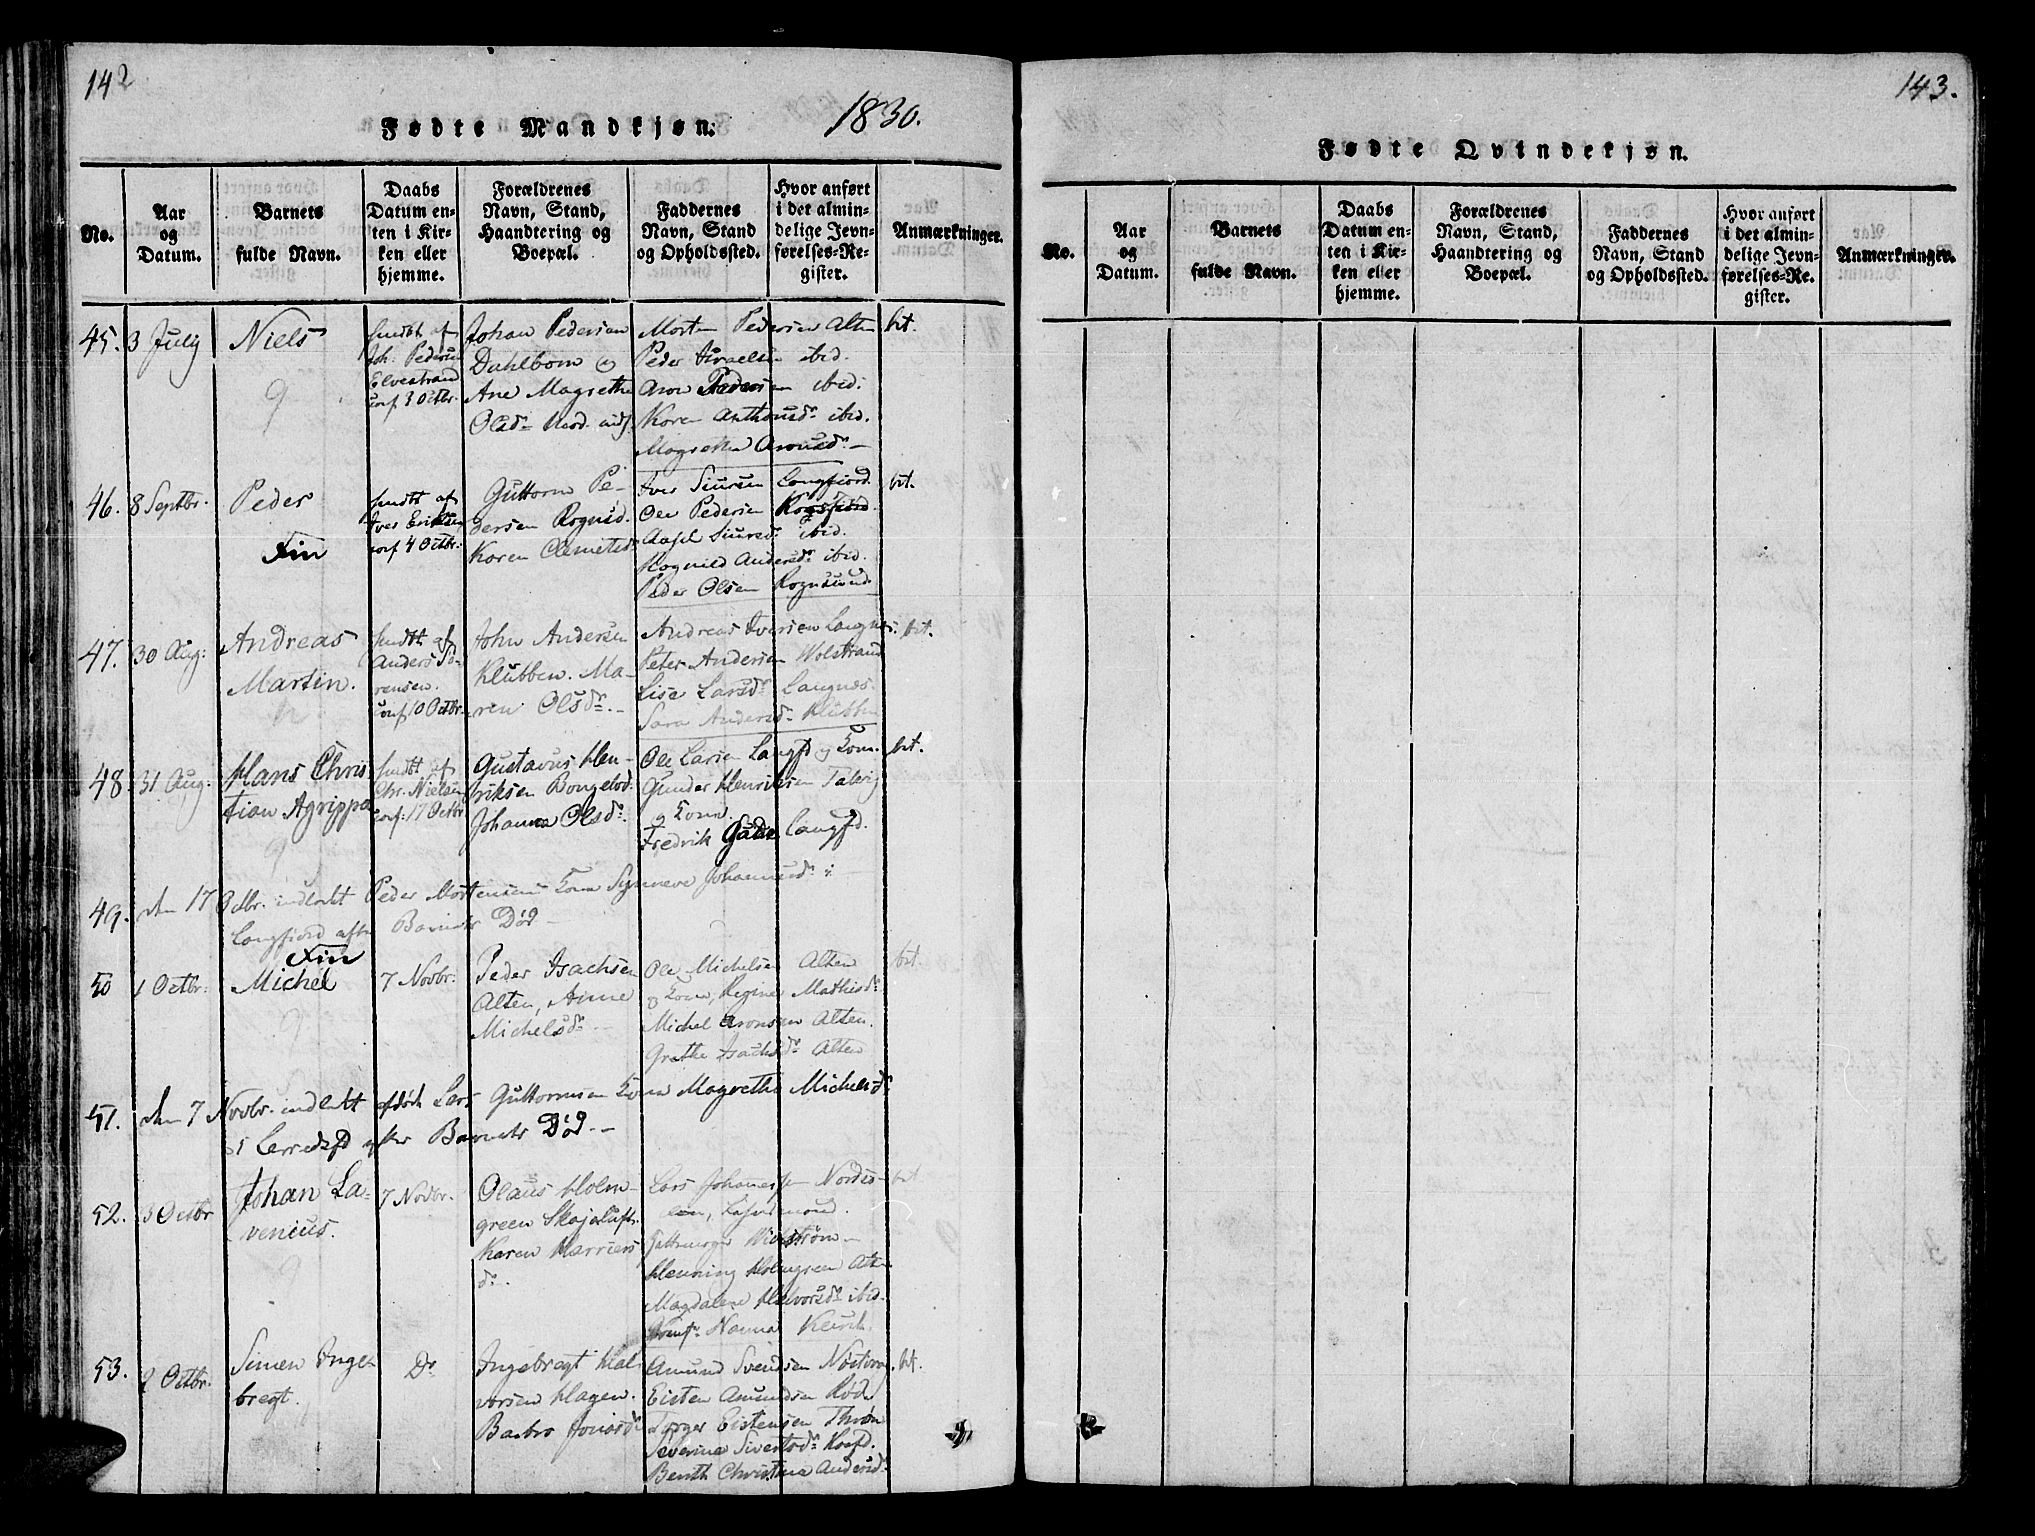 142
Fødte Mandkjøn.
1830.
No.
Aar
og
Datum.
Barnets
fulde Navn.
Daabs
Datum en-
ten i Kir-
ken eller
hjemme.
Forældrenes
Navn, Stand,
Haandtering og
Boepæl.
Faddernes
Navn, Stand
og Opholdssted.
Hvor anført
i det almin-
delige Jevn-
førelses-Re-
gister.
Anmærkninger.
45. 3 July
Niels
hmdt af
Joh: Pedersen
Elvestrand
conf. 3 Octbr.
Johan Pedersen
Dahlbom og
Ane Magrethe
Olsdr
Morten Pedersen Alten
Peder Israelsen ibid.
Aron Pedersen ibid:
Karen Anthonsdr ibid.
Magrethe Aronsdr
46. 8 Septbr.
Peder
Fin
hmdt af
Iver Eriksen
conf 4 Octbr:
Guttorm Pe-
dersen Rognsd.
Karen Clemetsdr
Iver Siursen Langfiord
Ole Pedersen Rognsund
Siursdr ibid.
Rognild Andersdr ibid
Peder Olsen Rognsund
47. 30 Aug:
Andreas
Martin.
hmdt af
Anders Sø-
rensen.
conf. 10 Octbr.
John Andersen
Klubben. Ma-
ren Olsdr.
Andreas Iversen Langnes.
Peter Andersen Wolstrand
Lise Larsdr Langnes.
Sara Andersdr Klubben
48. 31 Aug.
Hans Chris
tian Agrippa
hmdt af
Chr. Nielsen
conf: 17 Octbr
Gustavus Hen-
riksen
Johanna Olsdr.
Ole Larsen Langfd og Kone.
Gunder Henriksen Talvig
og Kone.
Fredrik Langfd.
49. den 17 Octbr. indledt Peder Mortensens Kone Synneve Johannesdr i
Langfiord efter Barnets Død
Fin
50 1 Octbr:
Michel
7 Novbr:
Peder Isachsen
Alten, Anne
Michelsdr.
Ole Michelsen Alten
og Kone, Regine Mathisdr
Michel Aronsen Alten.
Grethe Isachsdr Alten
51. den 7 Novbr. indledt afdøde Lars Guttormsen Kone Magrethe Michelsdr
i Lerredsfd efter Barnets Død.
52. 3 Octbr
Johan La-
venius.
7 Novbr.
Olaus Holm-
green Skojaluft.
Karen
dr.
Lars Johannesen
Henning Holmgreen Alten
Magdalene Halvorsdr ibid.
Jomfr Nanna
53. 2 Octbr.
Simen Inge-
bregt.
Do
Ingebregt Hal-
vorsen Hagen.
Barbro Jonsdr
Amund Svendsen
Eisten Amundsen Røde
Torger Eistensen Thrøn
Severine Sivertsdr Kaafd.
Benth Christina Andersdr
143.
Fødte Qvindekjøn.
No.
Aar
og
Datum.
Barnets
fulde Navn.
Daabs
Datum en-
ten i Kir-
ken eller
hjemme.
Forældrenes
Navn, Stand,
Haandtering og
Boepæl.
Faddernes
Navn, Stand
og Opholdssted.
Hvor anført
i det almin-
delige Jevn-
førelses-Re-
gister.
Anmærkninger.